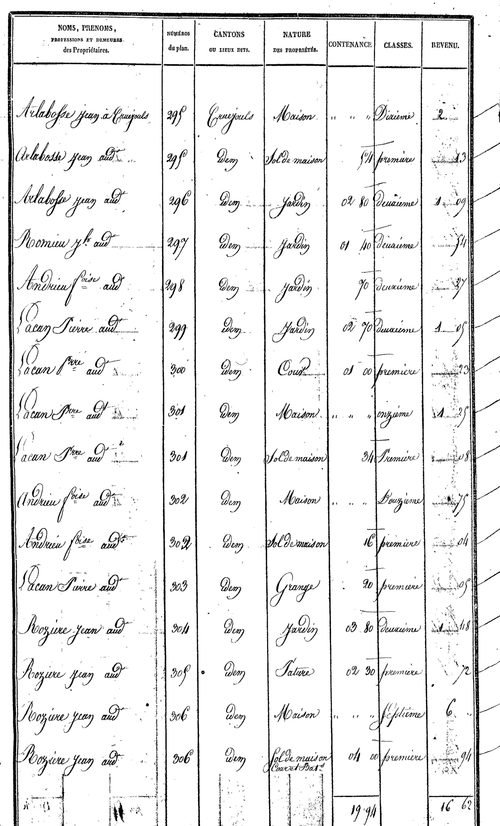 NOMS, PRENOMS, PROFESSIONS ET DEMEURES des Propriétaires. NUMÉROS du plan. CANTONS OU LIEUX DITS. NATURE DES PROPRIÉTÉS. CONTENANCE CLASSES. REVENU.
Arlabosse jean à Cruéjouls 295 Cruéjouls Maison " " " Dixième 2
Arlabosse jean audt 295 idem Sol de maison 54 première 13
Arlabosse jean audt 296 idem Jardin 02 80 Deuxième 1 09
Romieu jh audt 297 idem Jardin 01 40 deuxième 54
Andrieu foise audt 298 idem Jardin 70 deuxième 27
Lacan Pierre audt 299 idem Jardin 02 70 Deuxième 1 05
Lacan Pierre audt 300 idem Cour 01 00 première 23
Lacan Pierre audt 301 idem Maison " " " onzième 1 25
Lacan Pierre audt 301 idem Sol de maison 34 Première 08
Andrieu foise audt 302 idem Maison " " Douzième 75
Andrieu foise audt 302 idem Sol de maison 16 première 04
Lacan Pierre audt 303 idem Grange 20 première 05
Rozière jean audt 304 idem Jardin 03 80 Deuxième 1 48
Rozière jean audt 305 idem Pature 02 30 première 72
Rozière jean audt 306 idem Maison " " " Septième 6 "
Rozière jean audt 306 idem Sol de maison 04 00 première 94
19 94 16 62